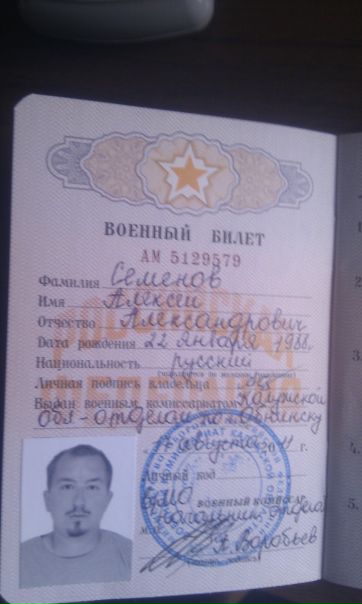 ВОЕННЫЙ БИЛЕТ
АМ 5129579
Фамилия Семенов
Имя Алексей
Отчество Александрович
Дата рождения 22 января 1988 г.
Национальность русский
Личная подпись владельца
Выдан военным комиссариатом Калужской
обл. отделом по г. Обнинску
августа 2011 г.
Личный код
военный комиссар
начальник отдела
А. Воробьев
1.
2.
3.
4.
5.